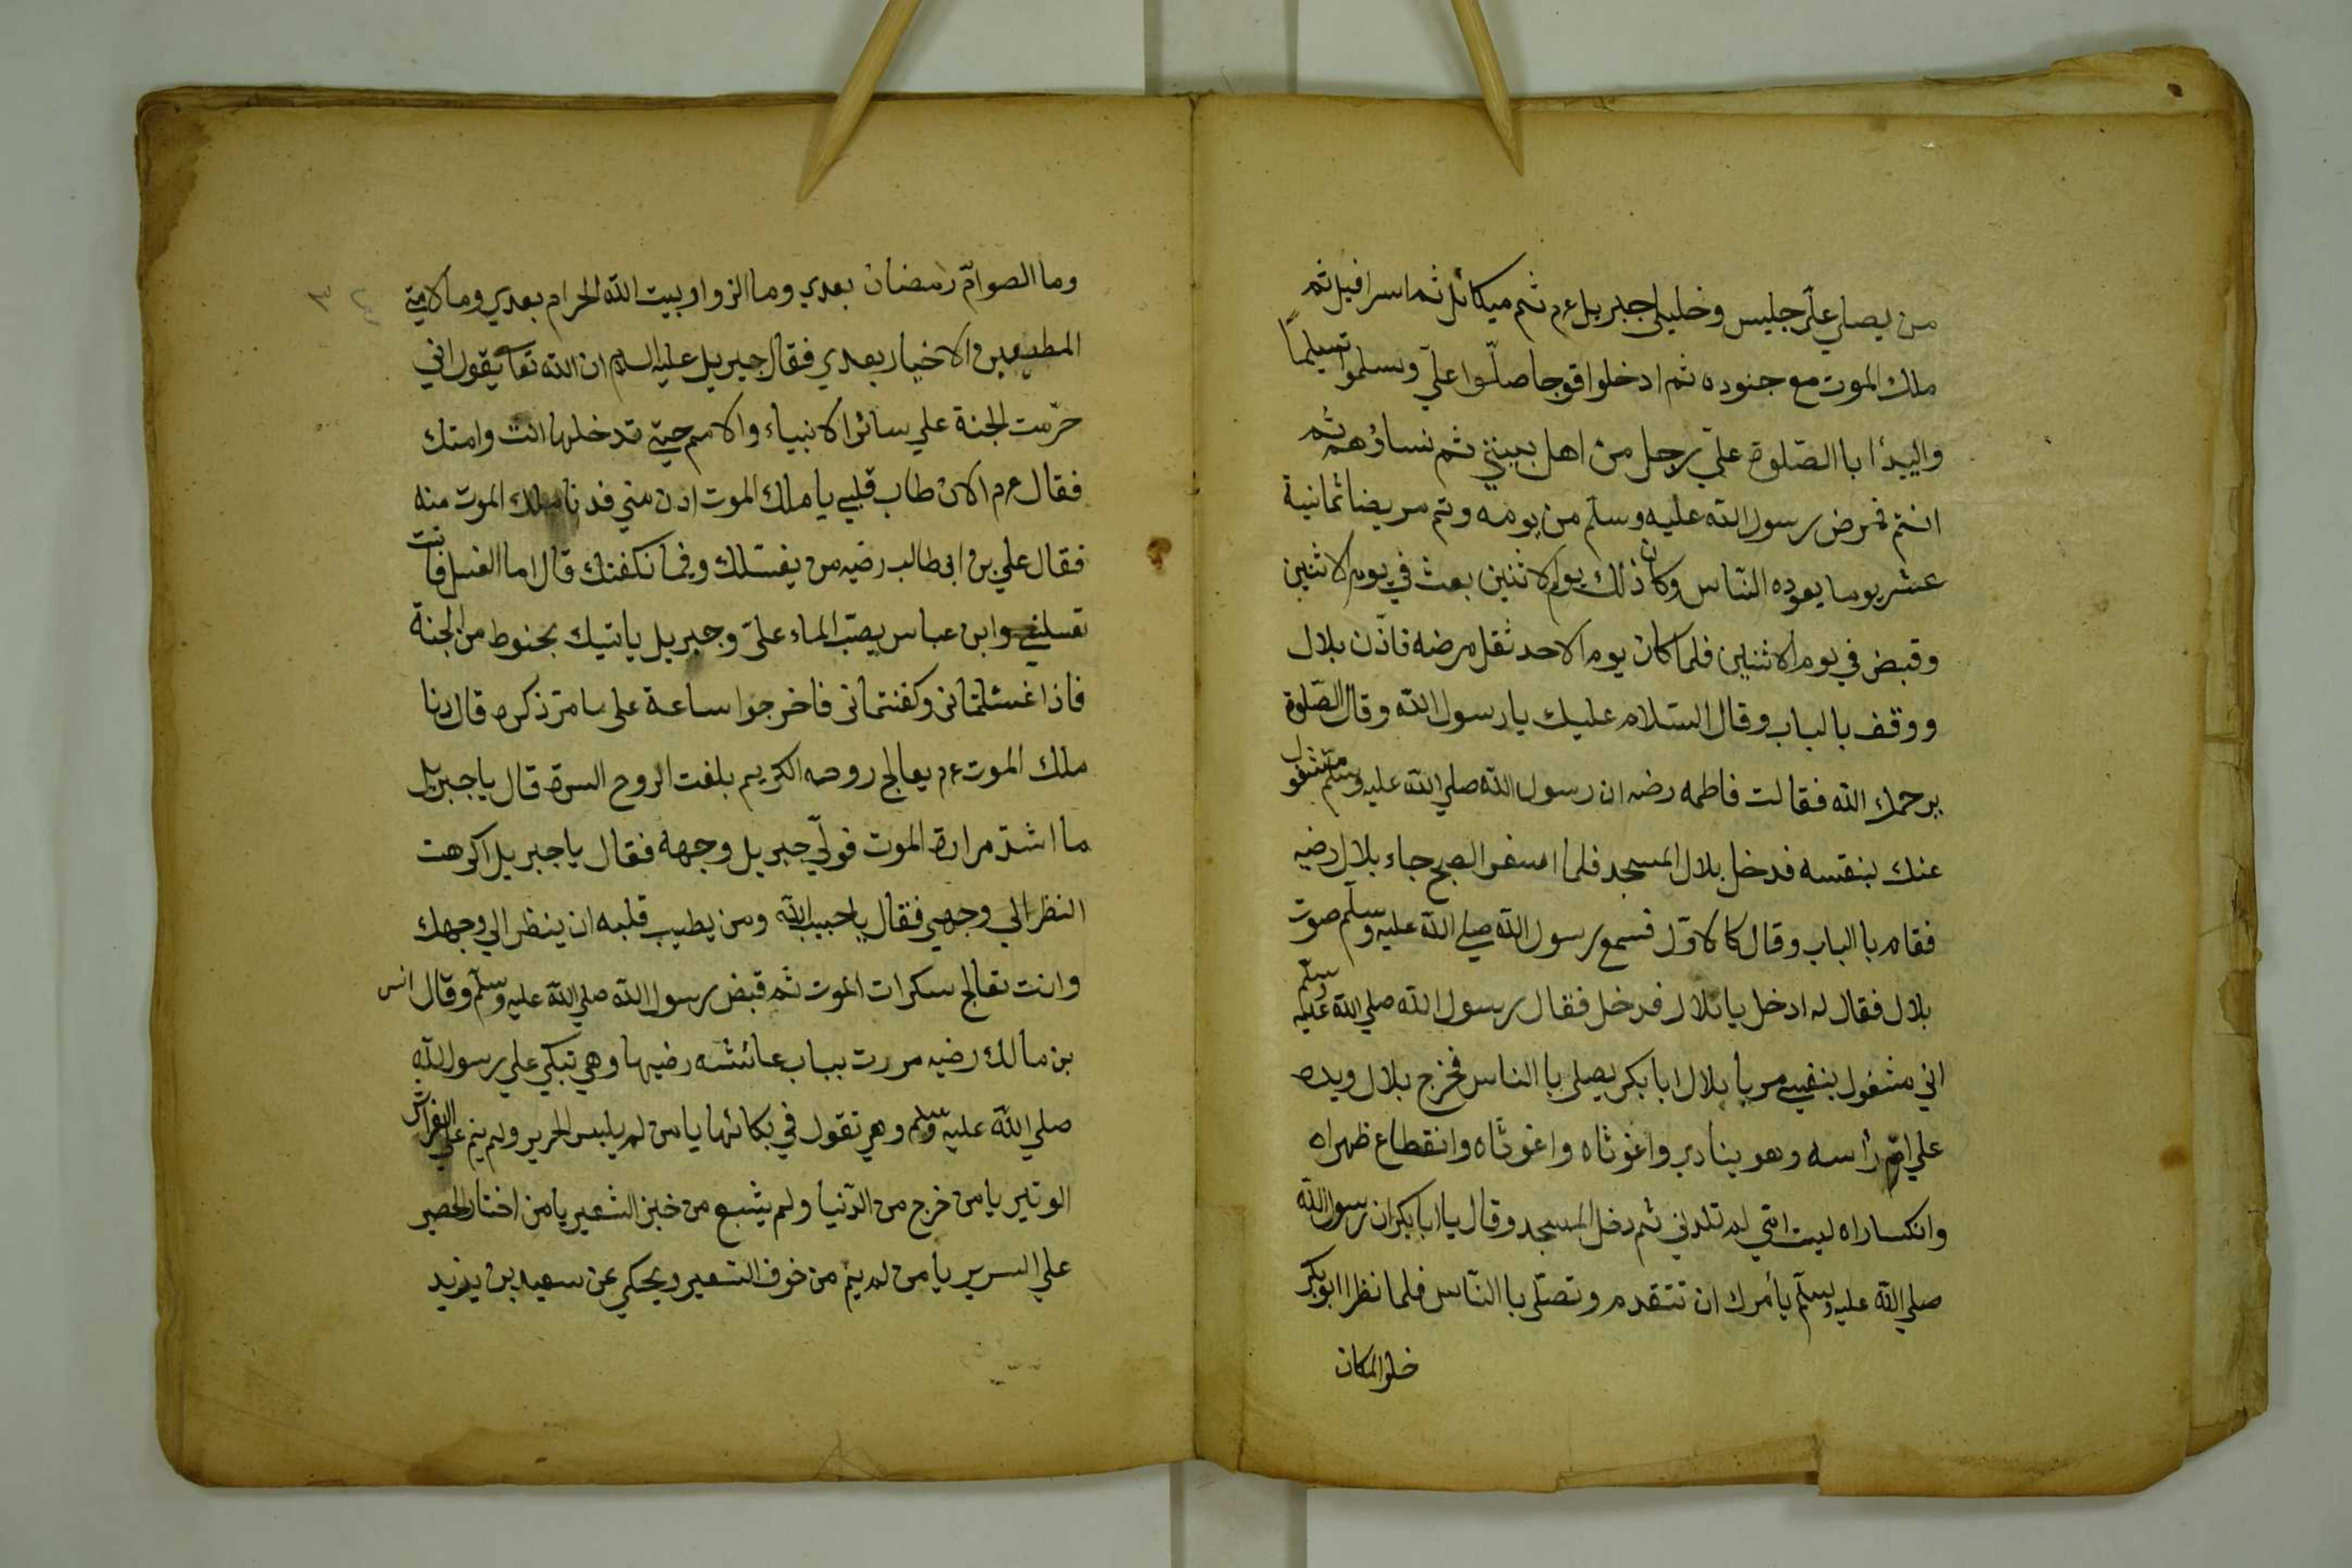 من يصلي علي جليس وخليلي جبريل عم ثم ميكائل ثم اسرافيل ثم
ملك الموت مع جنوده ثم ادخلوا فوجا صلّوا عليّ وسلموا تسليمًا
واليبدٔا باالصّلوة عليّ رجل من اهل بيتي ثم نساؤهم ثم
انتم فمرض رسول الله عليه وسلّم من يومه وتم مريضا ثمانية
عشر يوما يعوده النّاس وكان ذلك يوم الاثنين بعث في يوم الاثنين
وقبض في يوم الاثنين فلما كان يوم الاحد ثقل مرضه فاذّن بلال
ووقف بالباب وقال السّلام عليك يا رسول الله وقال الصّلوة
يرحمك الله فقالت فاطمه رضه ان رسول الله صلي الله عليه وسلّم مشغول
عنك بنفسه فدخل بلال المسجد فلما اسفر الصبح جاء بلال رضيه
فقام باالباب وقال كالاوّل فسمع رسول الله صلي الله عليه وسلّم صوت
بلال فقال له ادخل يا بلال فدخل فقال رسول الله صلي الله عليه وسلّم
اني مشغول بنفسي مر يا بلال ابا بكر يصلي باالناس فخرج بلال ويده
علي امّ رأسه وهو ينادي واغوثاه واغوثاه وانقطاع ظهراه
وانكساراه ليت امّي لم تلدني ثم دخل المسجد وقال يا ابا بكر ان رسول الله
صلي الله عليه وسلّم يأمرك ان تتقدم وتصلّي باالنّاس فلما نظر ابو بكر
خلو المكان
وما الصوامّ رمضان بعدي وما الزوار بيت الله الحرام بعدي وما لامتي
المطيعين والاخيار بعدي فقال جبريل عليه السلام ان الله تعا يقول اني
حرّمت الجنة علي سائر الانبياء والامم حتي تدخلها انت وامتك
فقال عم الان طاب قلبي يا ملك الموت ادن مني فدنا ملك الموت منه
فقال علي بن ابي طالب رضيه من يغسلك وفيما نكفنك قال اما الغسل فانت
تغسلني وابن عباس يصبّ الماء عليّ وجبريل ياتيك بحنوط من الجنة
فاذا غسلتماني وكفنتماني فاخرجوا ساعة علي ما مرّ ذكره قال دنا
ملك الموت عم يعالج روحه الكريم بلغت الروح السرة قال يا جبريل
ما اشدّ مرارة الموت فولّي جبريل وجهه فقال يا جبريل اكرهت
النظر الي وجهي فقال يا حبيب الله ومن يطيب قلبه ان ينظر الي وجهك
وانت تعالج سكرات الموت ثم قبض رسول الله صلي الله عليه وسلّم وقال انس
بن مالك رضيه مررت بباب عائشه رضيها وهي تبكي علي رسول الله
صلي الله عليه وسلم وهي تقول في بكائها يا من لم يلبس الحرير ولم ينم علي الفراش
الوتير يا من خرج من الدّنيا ولم يشبع من خبز الشعير يا من اختار الحصير
علي السرير يا من لم ينم من خوف السعير ويحكي عن سعيد بن يزيد